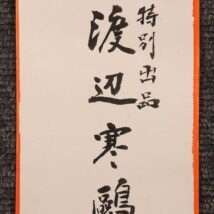 特別出品
渡辺寒鷗